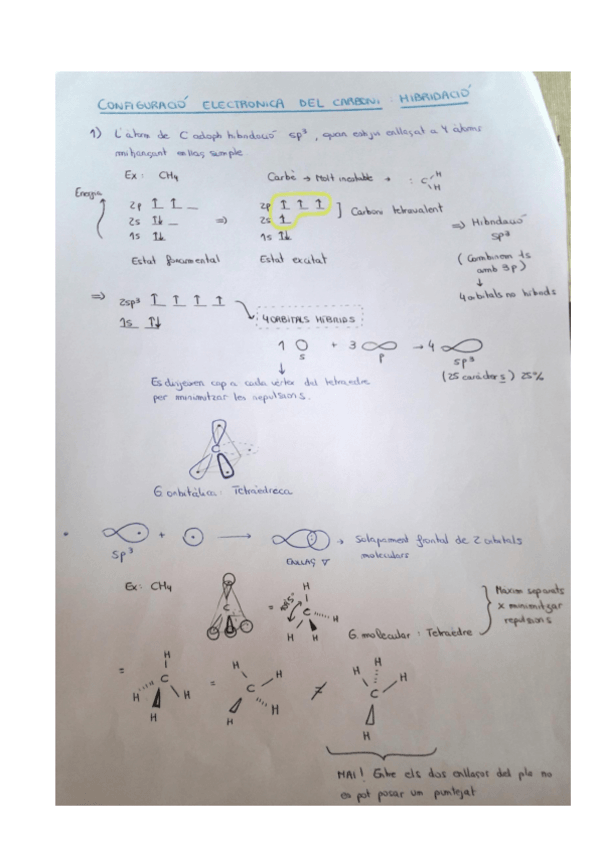 CONFIGURACIÓ ELECTRONICA DEL CARBONI. HIBRIDACIÓ
1) L'àtom de C adopta hibridació sp³, quan estigui enllaçat a 4 àtoms
mitjançant enllaç simple.
Ex: CH4
Carbè → Molt inestable → : C H H
Energia
2p
2s
1s
⇒
2p
2s
1s
] Carboni tetravalent
⇒ Hibridació
sp³
Estat fonamental
Estat excitat
(Combinem 1s
amb 3p)
↓
4 orbitals no híbrids
⇒ 2sp³
1s
4 ORBITALS HÍBRIDS
1 + 3 → 4
s p sp³
(25 caràcter s) 25%
Es dirigeixen cap a cada vèrtex del tetraedre
per minimitzar les repulsions.
C
G. orbitàlica: Tetraèdrica
sp³ + → → Solapament frontal de 2 orbitals
moleculars
ENLLAÇ ∇
Ex: CH4
C = H C H H H
G. molecular: Tetraedre
Màxim separats
x minimitzar
repulsions
= H C H H H = H H C H H ≠ H H C H H
MAI! Entre els dos enllaços del pla no
es pot posar un puntejat